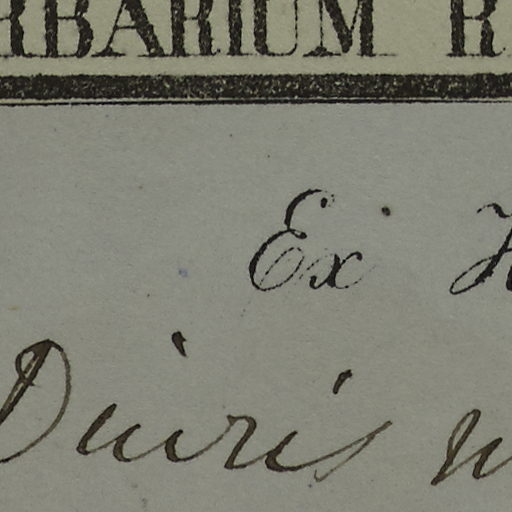 RBARIUM R
Ex H
Diuris